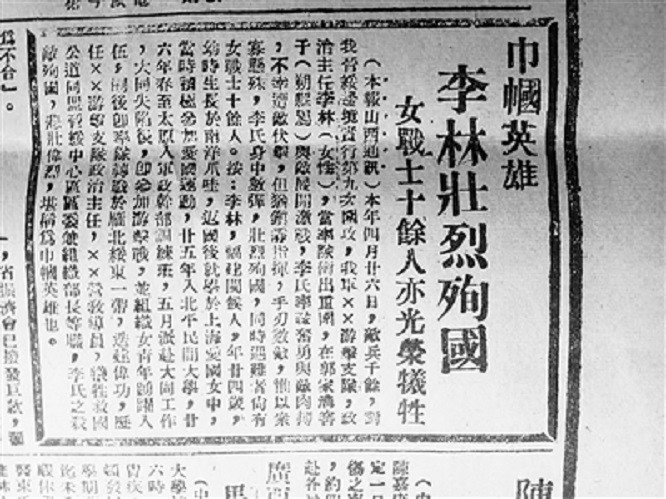 巾幗英雄
李林壯烈殉國
女戰士十餘人亦光榮犧牲
(本報山西通訊)本年四月廿六日,敵兵千餘,對
我晉綏邊境實行第九次圍攻,我軍××游擊支隊,政
治主任李林(女性),當率隊衝出重圍,在郭家窰
子(朔縣)與敵展開激戰,李氏率部奮勇與敵肉搏
,不幸遭敵伏擊,但猶鎮靜指揮,手刃數敵,惟以衆
寡懸殊,李氏身中數彈,壯烈殉國,同時遇難者尚有
女戰士十餘人。按:李林,福建閩侯人,年廿四歲,
幼時生長於南洋爪哇,返國後就學於上海愛國女中,
當時積極參加愛國運動,廿五年入北平民國大學,廿
六年春至太原入軍政幹部訓練班,五月派赴大同工作
,大同失陷後,即參加游擊戰,並組織女青年踴躍入
伍,嗣後即率隊轉戰於雁北綏東一帶,迭建偉功,歷
任××游擊支隊政治主任,××營教導員,犧牲救國
公道同盟晉綏中心區區委兼組織部長等職,李氏之殺
敵殉國,悲壯偉烈,堪稱爲巾幗英雄也。
爲不合」。
省振濟會已撥發巨款,
陳
廣
大學
六時